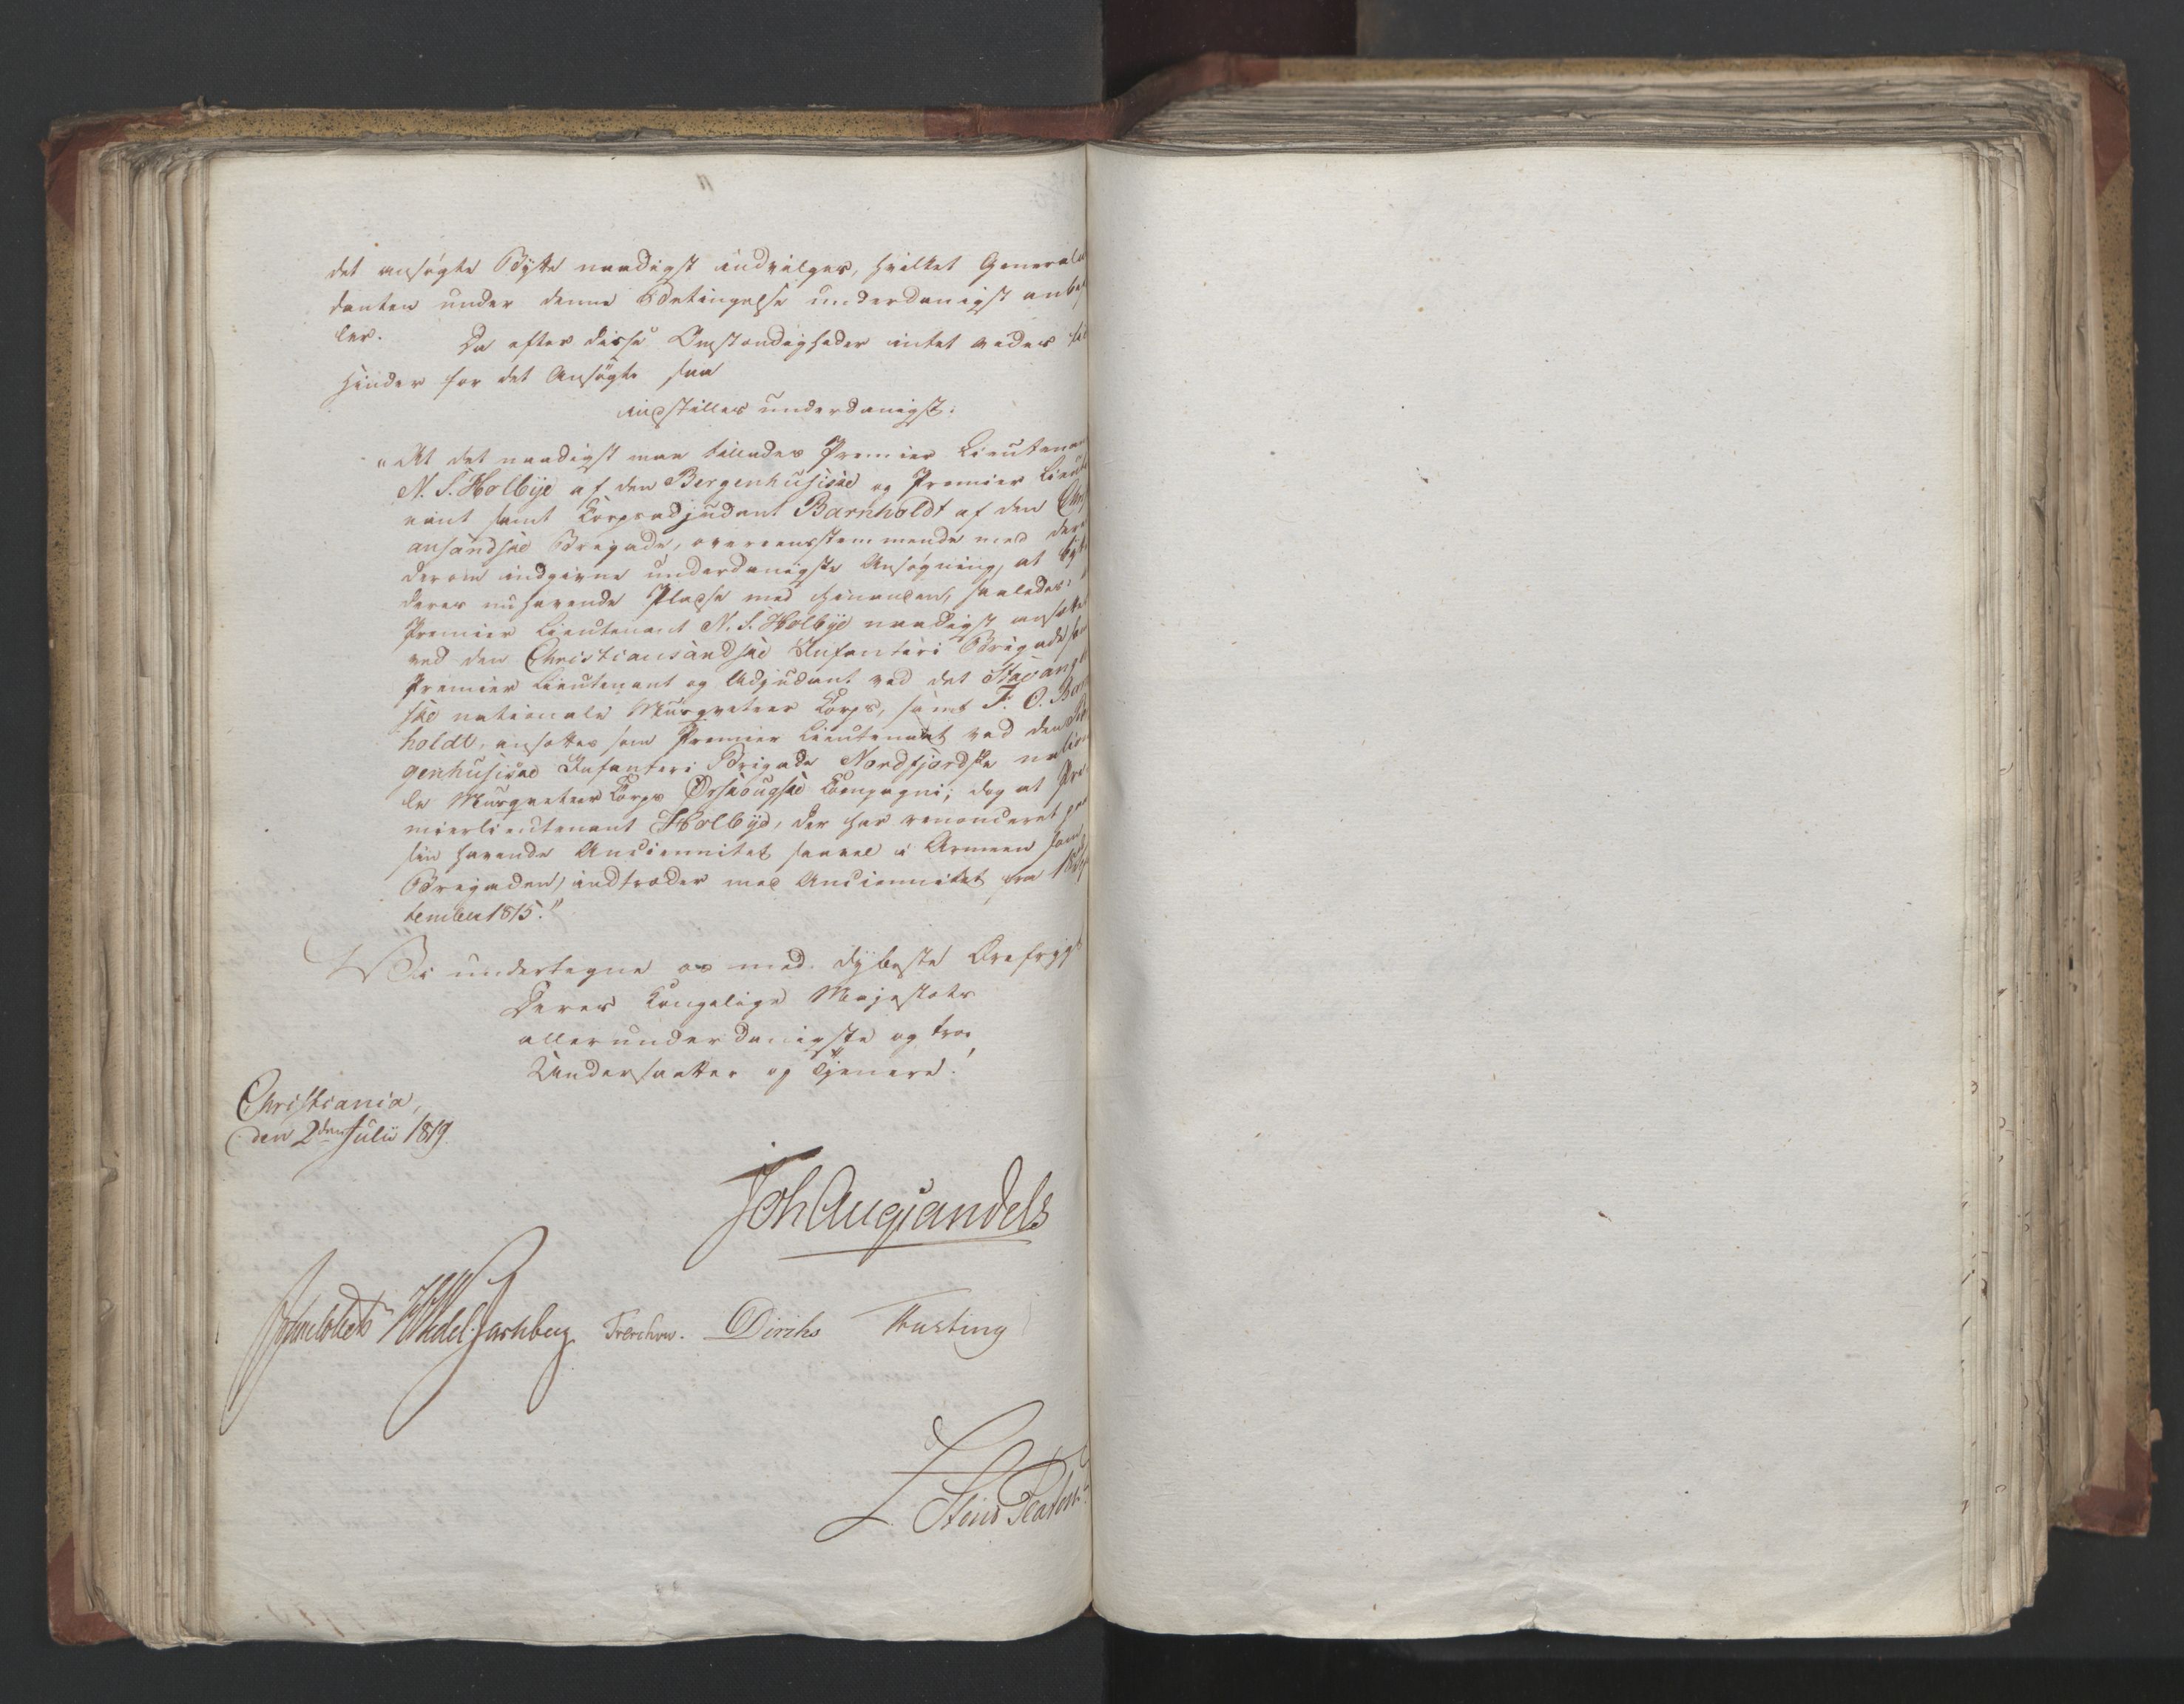 det ansøgte Bytte naadigst indvilges, hvilket General
danten under denne Betingelse underdanigst anbe
ler. Da efter disse Omstændigheder intet vides til
Hinder for det Ansøgte saa
indstilles underdanigst:
"At det naadigst maa tillades Premier Lieutenan
N. S. Holbye af den Bergenhusiske og Premier Lieut
nant samt Corpsadjudant Barnholdt af den Chri
ansandske Brigade, overeensstemmende med deres
derom indgivne underdanigste Ansøgning, at bytte
deres nuhavende Pladse med hinanden, saaledes at
Premier Lieutenant N. S. Holbye naadigst ansættes
ved den Christiansandske Infanteri Brigade som
Premier Lieutenant og Adjudant ved det Stavanger
ske nationale Musqueteer Corps, samt F. O. Barn
holdt, ansættes som Premier Lieutenant ved den Ber
genhusiske Infanteri Brigade Nordfjordske nation
le Musqueteer Corps Ørskougske Compagni; dog at Pre
mierlieutenant Holbye, der har renonceret paa
sin havende Anciennitet saavel i Armeen som
Brigaden, indtræder med Anciennitet fra 18 Sep
tember 1815."
Vi undertegne os med dybeste Ærefrygt
Deres Kongelige Majestæts
allerunderdanigste og troe
Undersaatter og Tjenere!
Christiania,
den 2den Julii 1819.
Joh Aug Sandels
Sommerhielm Wedel-Jarlsberg Treschow. Diriks Fasting